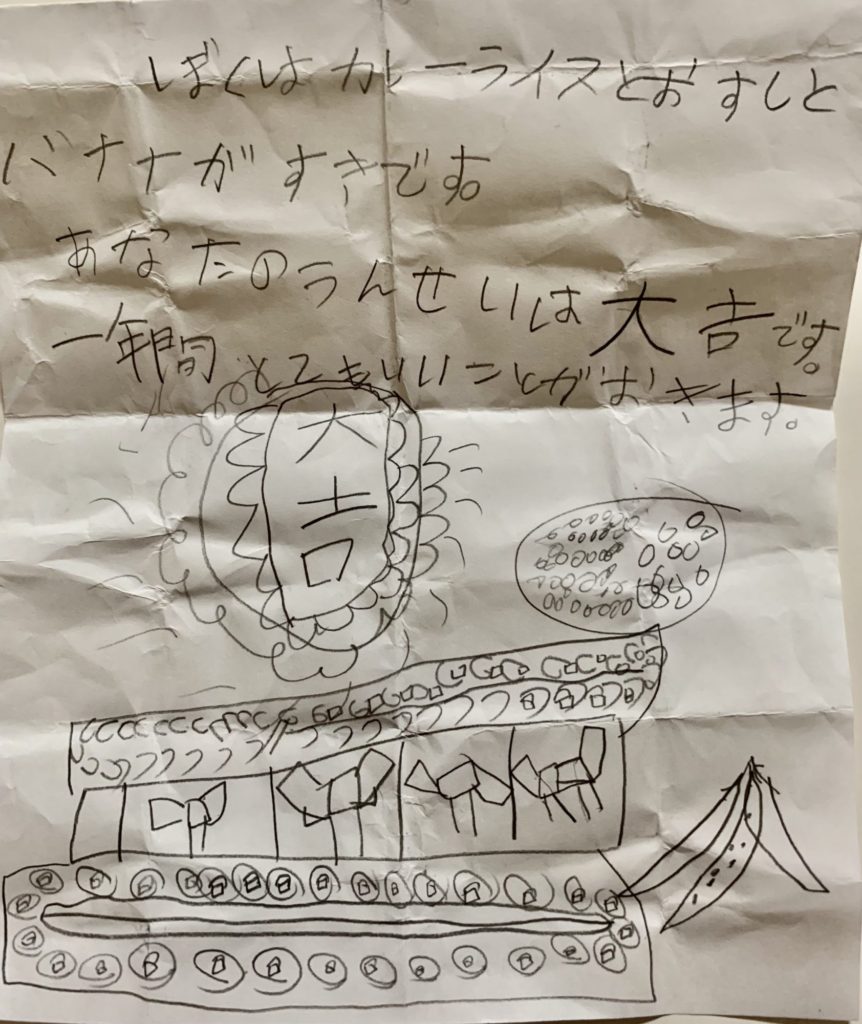 ぼくはカレーライスとおすしと
バナナがすきです。
あなたのうんせいは大吉です。
一年間とてもいいことがおきます。
大
吉